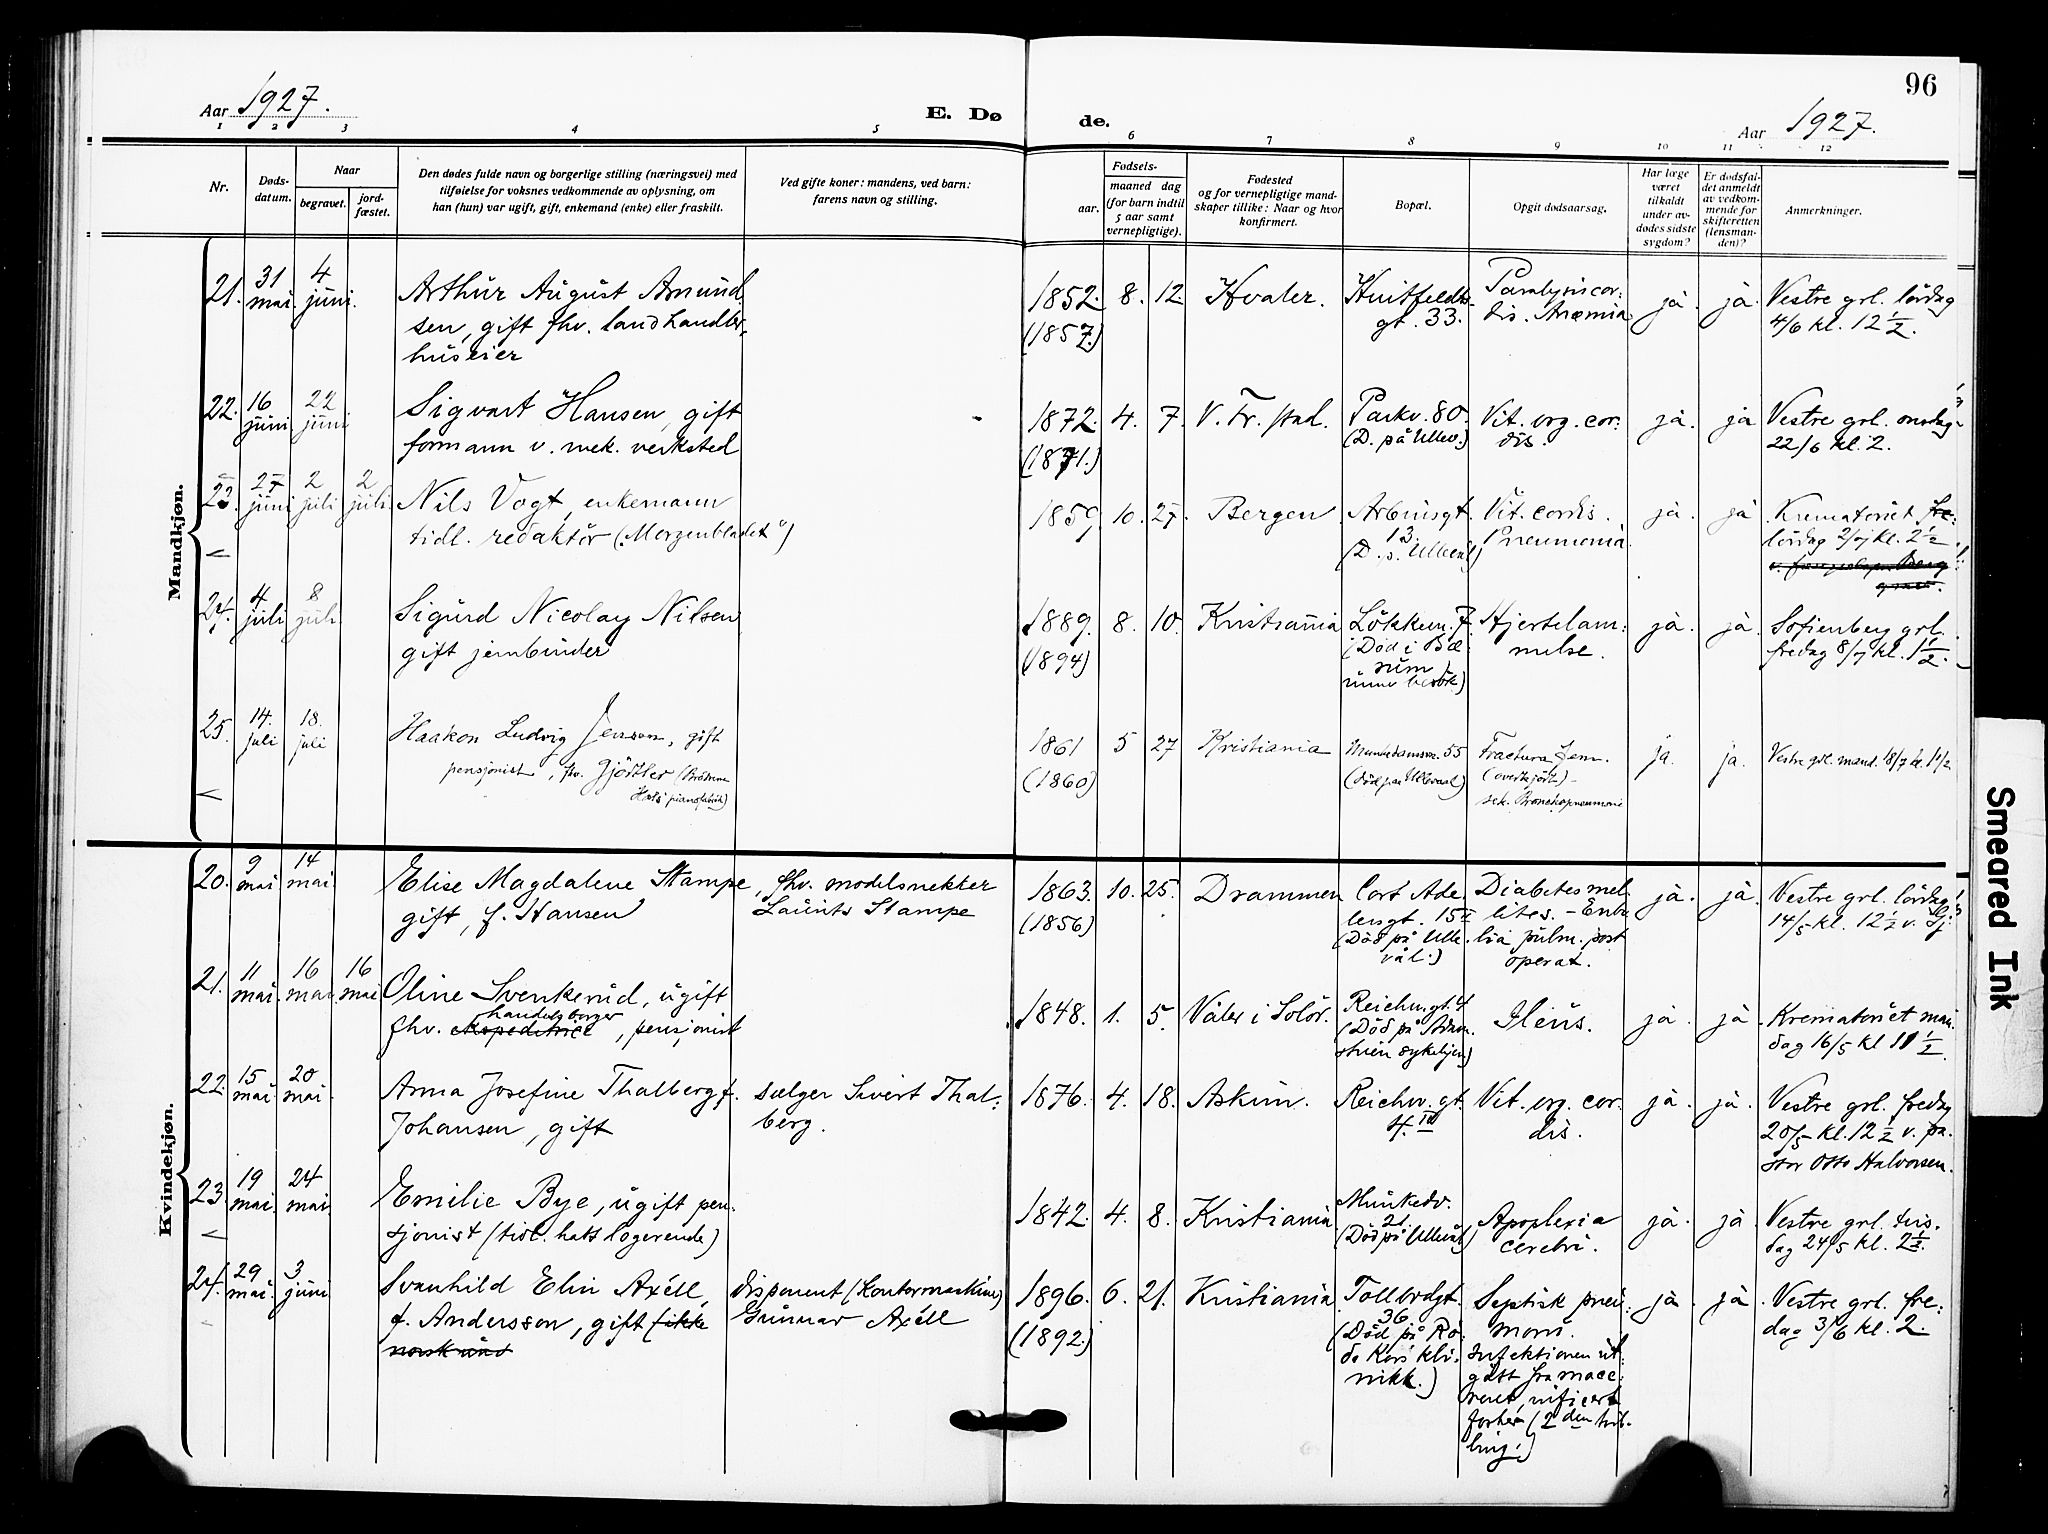 96
Aar 1927.
E. Dø
de.
Aar 1927.
1 2 3 4 5 6 7 8 9 10 11 12
Nr.
Døds-
datum.
Naar
begravet.
jord-
fæstet.
Den dødes fulde navn og borgerlige stilling (næringsvei) med
tilføielse for voksnes vedkommende av oplysning, om
han (hun) var ugift, gift, enkemand (enke) eller fraskilt.
Ved gifte koner: mandens, ved barn:
farens navn og stilling.
Fødsels-
aar.
maaned dag
(for barn indtil
5 aar samt
vernepligtige).
Fødested
og for vernepligtige mand-
skaper tillike: Naar og hvor
konfirmert.
Bopæl.
Opgit dødsaarsag.
Har læge
været
tilkaldt
under av-
dødes sidste
sygdom?
Er dødsfal-
det anmeldt
av vedkom-
mende for
skifteretten
(lensman-
den)?
Anmerkninger.
Mandkjøn.
21.
31
mai
4
juni.
Arthur August Amund
sen, gift fhv. landhandler,
huseier
1852.
(1857.)
8. 12.
Hvaler.
Huitfeldts
gt. 33.
Paralysis cor:
dis. Anæmia
ja. ja.
Vestre grl. lördag
4/6 kl. 12 1/2.
22.
16
juni
22
juni
Sigvart Hansen, gift
formann v. mek. verksted
1872.
(1871.)
4. 7.
V. Fr. stad.
Parkv. 80.
(D. på Ullev.)
Vit. org. cor:
dis.
ja. ja
Vestre grl. onsdag
22/6 kl. 2.
23.
27
juni
2
juli
2
juli.
Nils Vogt, enkemann
tidl. redaktör ("Morgenbladet")
1859. 10. 27.
Bergen
Arbinsgt.
13.
(D. p. Ullevål)
Vit. cordis.
Pneumonia.
ja. ja
Krematoriet fre:
lördag 2/7 kl. 2 1/2
24.
4
juli
8
juli.
Sigurd Nicolay Nilsen
gift jernbinder
1889.
(1894)
8. 10.
Kristiania
Lökkev. 7.
(Död i Bæ
rum
under besök)
Hjertelam:
melse.
ja. ja.
Sofienberg grl.
fredag 8/7 kl. 1 1/2.
25.
14.
juli
18.
juli
Haakon Ludvig Jensen, gift
pensjonist, fhv. Gjörtler (Brödrene
Hals' pianofabrik)
1861
(1860)
5 27
Kristiania
Munkedamsvn. 55
(död paa Ullevaal)
Fractura fem.
(overkjört) –
sek. Bronchopneumoni
ja. ja.
Vestre grl. mand. 18/7 kl. 1 1/2
Kvindekjøn.
20.
9
mai
14
mai.
Elise Magdalene Stampe,
gift, f. Hansen
fhv. modelsnekker
Laurits Stampe
1863.
(1856)
10. 25.
Drammen
Cort Ade
lersgt. 15 II
(Död på Ulle.
vål.)
Diabetes mel
litus. – Embo
lia pulm. post
operat.
ja. ja.
Vestre grl. lördag
14/5 kl. 12 1/2 v. Gj.
21.
11
mai.
16
mai.
16
mai
Oline Svenkerud, ugift
handelsborger
fhv. ekspeditrice, pensjonist
1848. 1. 5.
Våler i Solör.
Reichw. gt. 4
(Död på Adam
stuen sykehjem)
Ileus.
ja ja
Krematoriet man
dag 16/5 kl 11 1/2.
22.
15
mai.
20
mai.
Anna Josefine Thalberg f.
Johansen, gift
sælger Sivert Thal:
berg.
1876. 4. 18.
Askim.
Reichw. gt.
4. IV
Vit. org. cor
dis.
ja. ja.
Vestre grl. fredag
20/5 kl. 12 1/2 v. pa.
stor Otto Halvorsen.
23.
19
mai.
24
mai.
Emilie Bye, ugift pen.
sjonist (tidl. hattlogerende)
1842. 4. 8.
Kristiania
Munkedv.
21.
(Död på Ullevål)
Apoplexia
cerebri.
ja. ja.
Vestre grl. tirs.
dag 24/5 kl. 2 1/2.
24.
29
mai.
3
juni
Svanhild Elin Axéll,
f. Andersson, gift (ikke
norsk und
disponent (kontormaskiner)
Gunnar Axéll
1896.
(1892.)
6. 21.
Kristiania
Tollbodgt.
36.
(Död på Rö:
de Kors kli.
nikk.)
Septisk pneu:
moni.
Infektionen ut:
gått fra mace:
reret, inficert
foster (2 den tvil-
ling.)
ja. ja.
Vestre grl. fre:
dag 3/6 kl. 2.
Smeared Ink